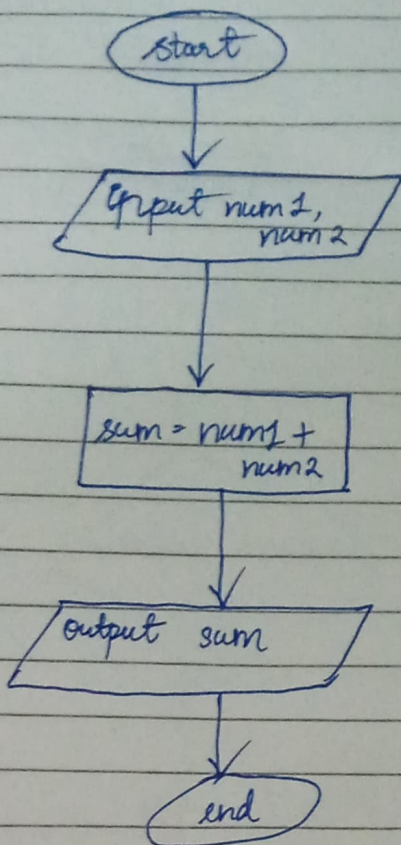 start
Input num1,
num2
sum = num1 +
num2
output sum
end